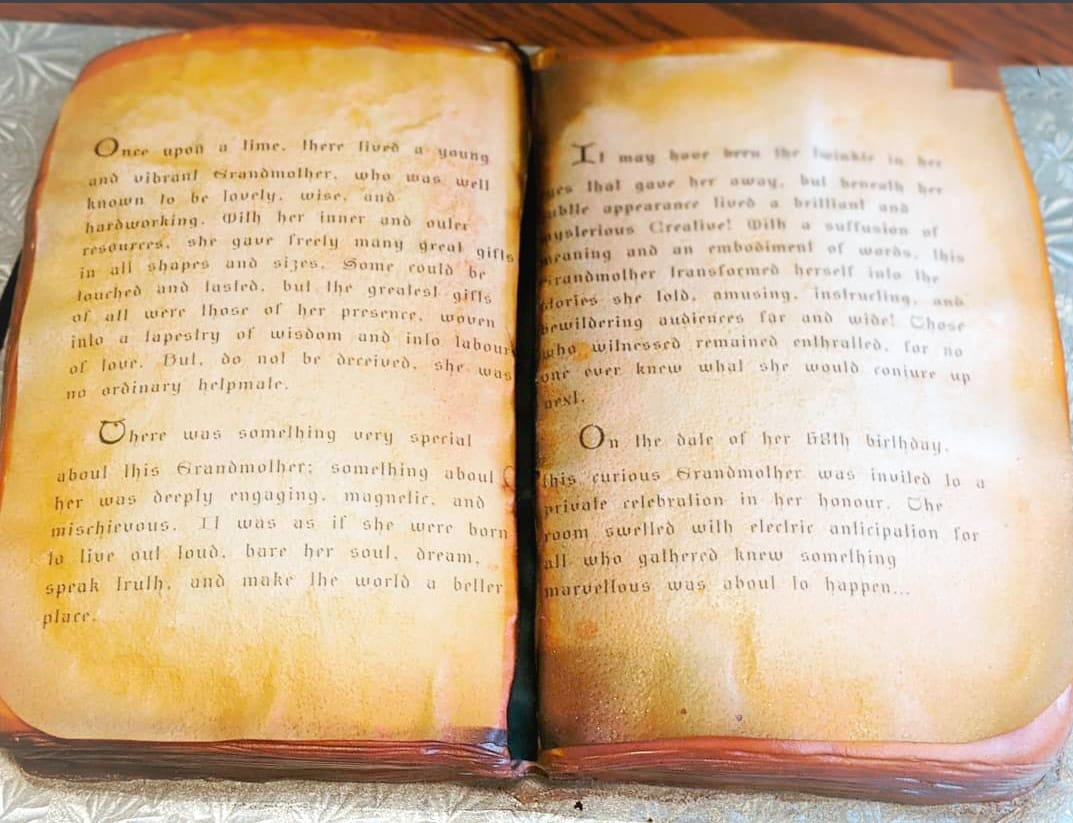 Once upon a time, there lived a young
and vibrant Grandmother, who was well
known to be lovely, wise, and
hardworking. With her inner and outer
resources, she gave freely many great gifts
in all shapes and sizes. Some could be
touched and tasted, but the greatest gifts
of all were those of her presence, woven
into a tapestry of wisdom and into labours
of love. But, do not be deceived, she was
no ordinary helpmate.
There was something very special
about this Grandmother; something about
her was deeply engaging, magnetic, and
mischievous. It was as if she were born
to live out loud, bare her soul, dream,
speak truth, and make the world a better
place.
It may have been the twinkle in her
eyes that gave her away, but beneath her
subtle appearance lived a brilliant and
mysterious Creative! With a suffusion of
meaning and an embodiment of words, this
Grandmother transformed herself into the
stories she told, amusing, instructing, and
bewildering audiences far and wide! Those
who witnessed remained enthralled, for no
one ever knew what she would conjure up
next.
On the date of her 68th birthday,
this curious Grandmother was invited to a
private celebration in her honour. The
room swelled with electric anticipation for
all who gathered knew something
marvellous was about to happen...